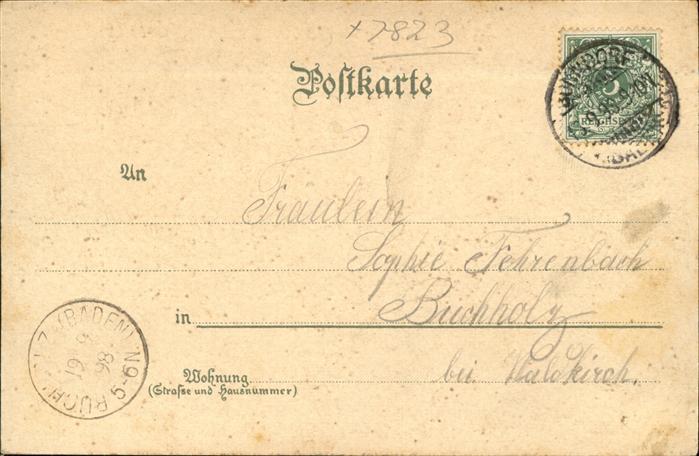 +7823
Postkarte
An
Fräulein
Sophie Fehrenbach
in Buchholz
Wohnung
(Strafse und Hausnummer)
bei Waldkirch.
BUCHHOLZ (BADEN)
19 9 98
N9-9